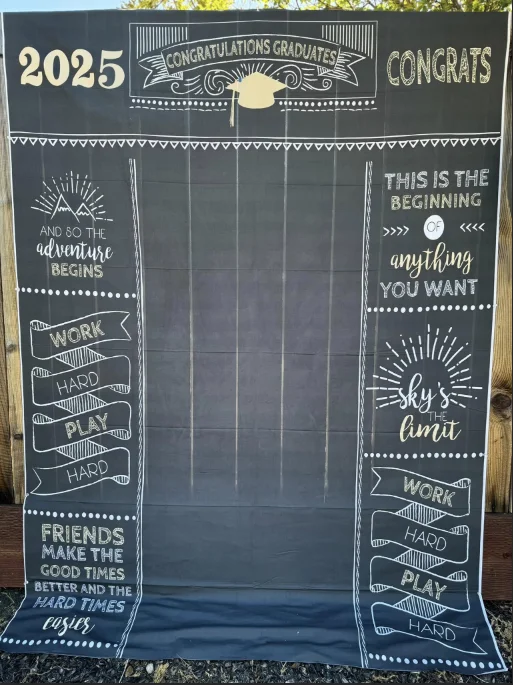 2025
CONGRATULATIONS GRADUATES
CONGRATS
AND SO THE
adventure
BEGINS
WORK
HARD
PLAY
HARD
FRIENDS
MAKE THE
GOOD TIMES
BETTER AND THE
HARD TIMES
easier
THIS IS THE
BEGINNING
OF
anything
YOU WANT
sky's
THE
limit
WORK
HARD
PLAY
HARD